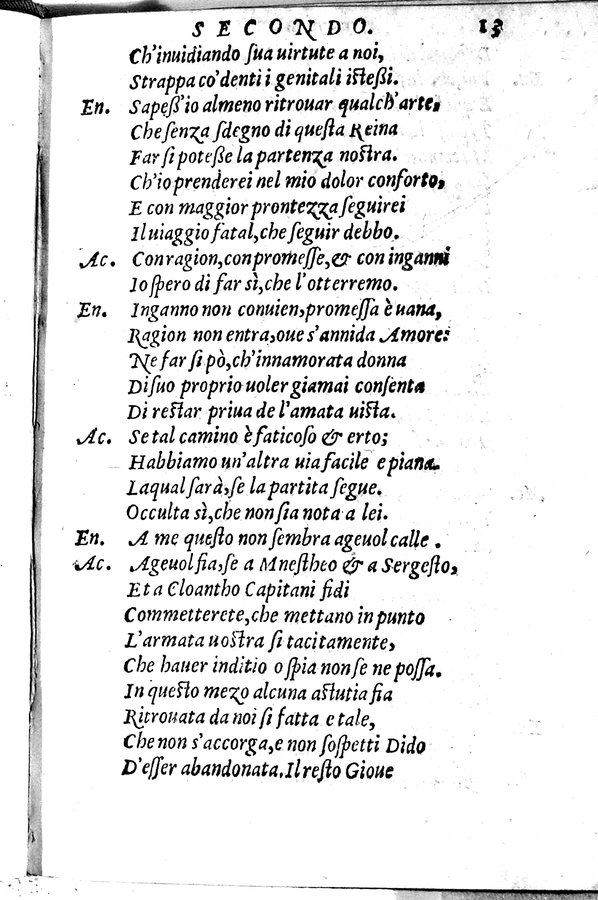 SECONDO. 13
Ch'inuidiando ſua uirtute a noi,
Strappa co'denti i genitali iſteßi.
En. Sapeß'io almeno ritrouar qualch'arte,
Che ſenza ſdegno di queſta Reina
Far ſi poteße la partenza noſtra.
Ch'io prenderei nel mio dolor conforto,
E con maggior prontezza ſeguirei
Il uiaggio fatal, che ſeguir debbo.
Ac. Con ragion, con promeſſe, & con inganni
Io ſpero di far sì, che l'otterremo.
En. Inganno non conuien, promeſſa è uana,
Ragion non entra, oue s'annida Amore:
Ne far ſi pò, ch'innamorata donna
Di ſuo proprio uoler giamai conſenta
Di reſtar priua de l'amata uiſta.
Ac. Se tal camino è faticoſo & erto;
Habbiamo un'altra uia facile e piana.
Laqual ſarà, ſe la partita ſegue.
Occulta sì, che non ſia nota a lei.
En. A me queſto non ſembra ageuol calle .
Ac. Ageuol fia, ſe a Mneſtheo & a Sergeſto,
Et a Cloantho Capitani fidi
Commetterete, che mettano in punto
L'armata uoſtra ſi tacitamente,
Che hauer inditio o ſpia non ſe ne poſſa.
In queſto mezo alcuna aſtutia fia
Ritrouata da noi ſi fatta e tale,
Che non s'accorga, e non ſoſpetti Dido
D'eſſer abandonata. Il reſto Gioue